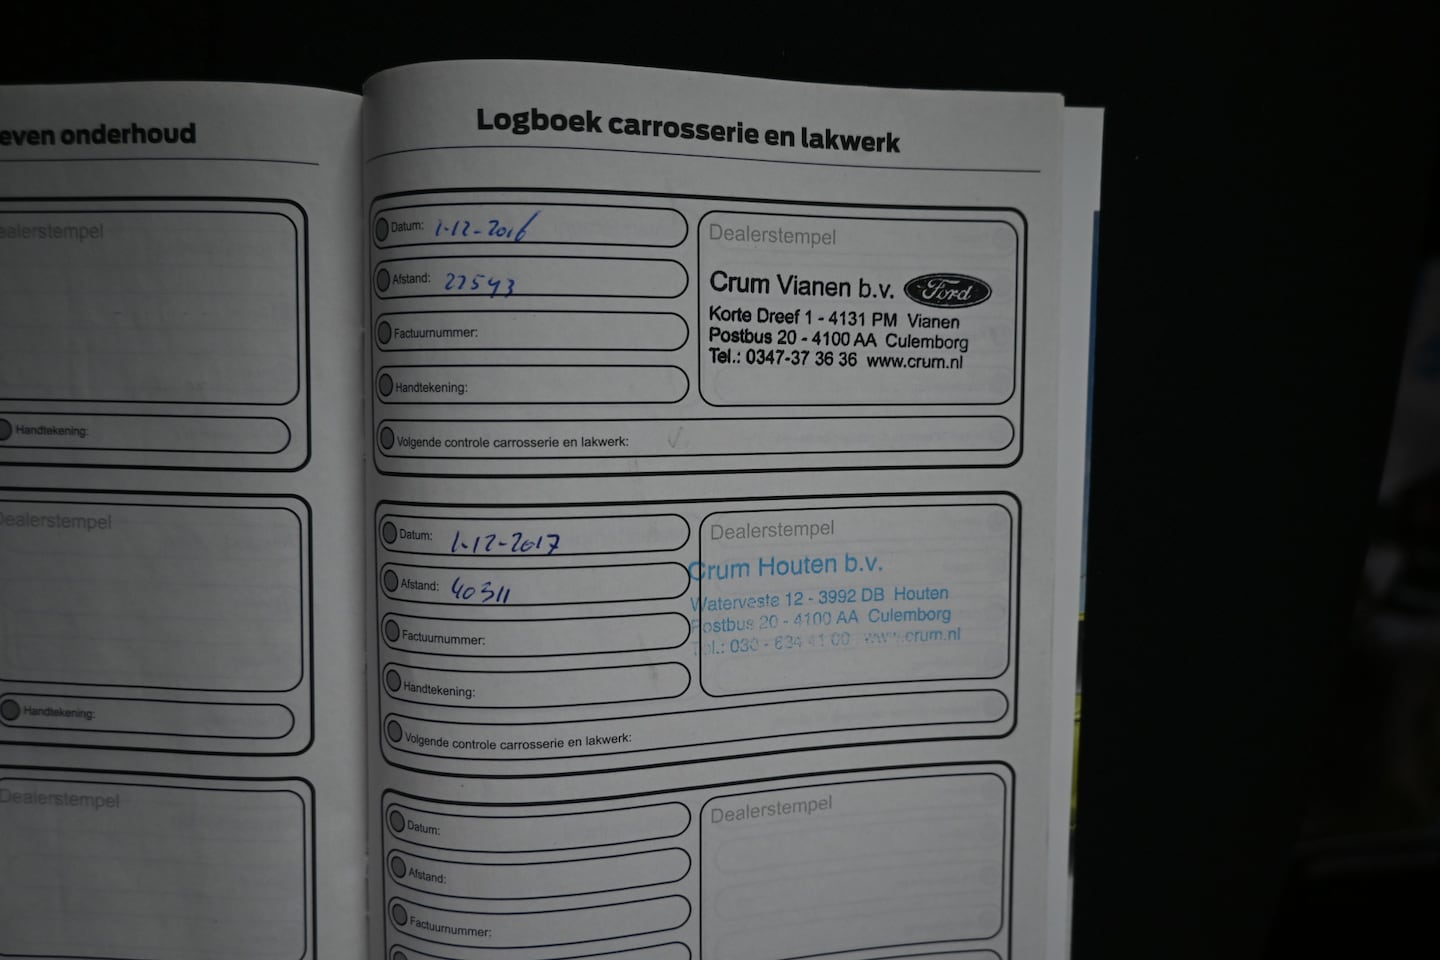 even onderhoud
ealerstempel
Handtekening:
Dealerstempel
Handtekening:
Dealerstempel
Logboek carrosserie en lakwerk
Datum: 1-12-2016
Afstand: 22543
Factuurnummer:
Handtekening:
Volgende controle carrosserie en lakwerk:
Dealerstempel
Crum Vianen b.v. Ford
Korte Dreef 1 - 4131 PM Vianen
Postbus 20 - 4100 AA Culemborg
Tel.: 0347-37 36 36 www.crum.nl
Datum: 1-12-2017
Afstand: 40311
Factuurnummer:
Handtekening:
Volgende controle carrosserie en lakwerk:
Dealerstempel
Crum Houten b.v.
Waterveste 12 - 3992 DB Houten
Postbus 20 - 4100 AA Culemborg
Tel.: 030 - 634 41 00 www.crum.nl
Datum:
Afstand:
Factuurnummer:
Dealerstempel